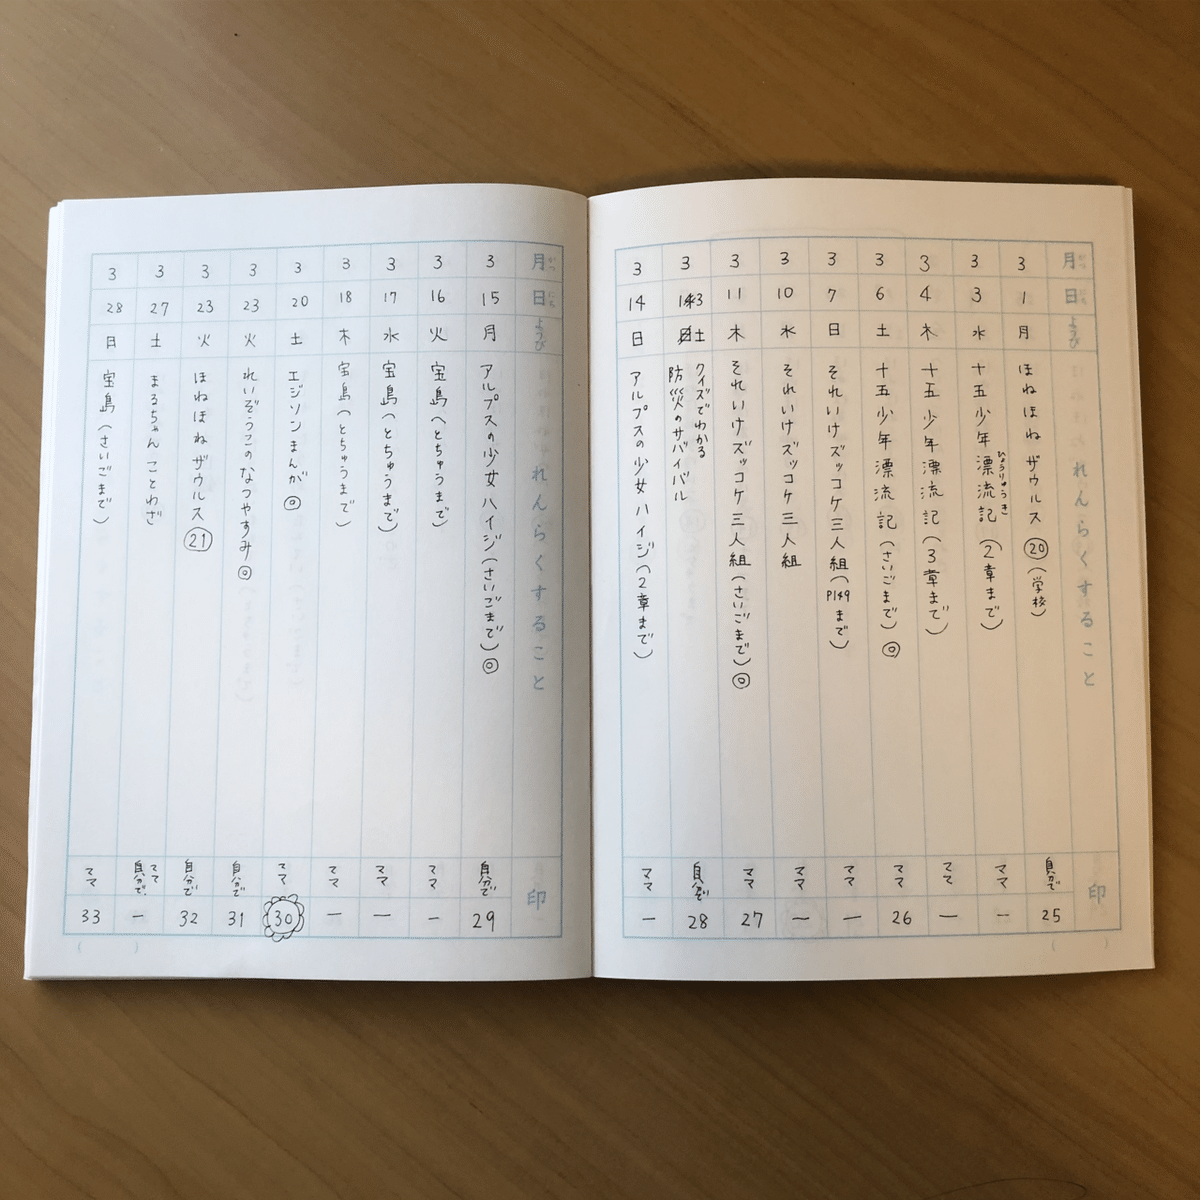 月 がつ 日 にち ようび れんらくすること 印
3 1 月 ほねほねザウルス ⑳ (学校) 自分で 25
3 3 水 十五少年漂流記 (2章まで) ママ ー
ひょうりゅうき
3 4 木 十五少年漂流記 (3章まで) ママ ー
3 6 土 十五少年漂流記 (さいごまで) ◎ ママ 26
3 7 日 それいけズッコケ三人組 (P149まで) ママ ー
3 10 水 それいけズッコケ三人組 ママ ー
3 11 木 それいけズッコケ三人組 (さいごまで) ◎ ママ 27
3 13 土 クイズでわかる
防災のサバイバル 自分で 28
3 14 日 アルプスの少女ハイジ (2章まで) ママ ー
( )
月 がつ 日 にち ようび れんらくすること 印
3 15 月 アルプスの少女ハイジ (さいごまで) ◎ 自分で 29
3 16 火 宝島 (とちゅうまで) ママ ー
3 17 水 宝島 (とちゅうまで) ママ ー
3 18 木 宝島 (とちゅうまで) ママ ー
3 20 土 エジソンまんが ◎ ママ 30
3 23 火 れいぞうこのなつやすみ ◎ 自分で 31
3 23 火 ほねほねザウルス ㉑ 自分で 32
3 27 土 まるちゃん ことわざ ママ 自分で ー
3 28 日 宝島 (さいごまで) ママ 33
( )